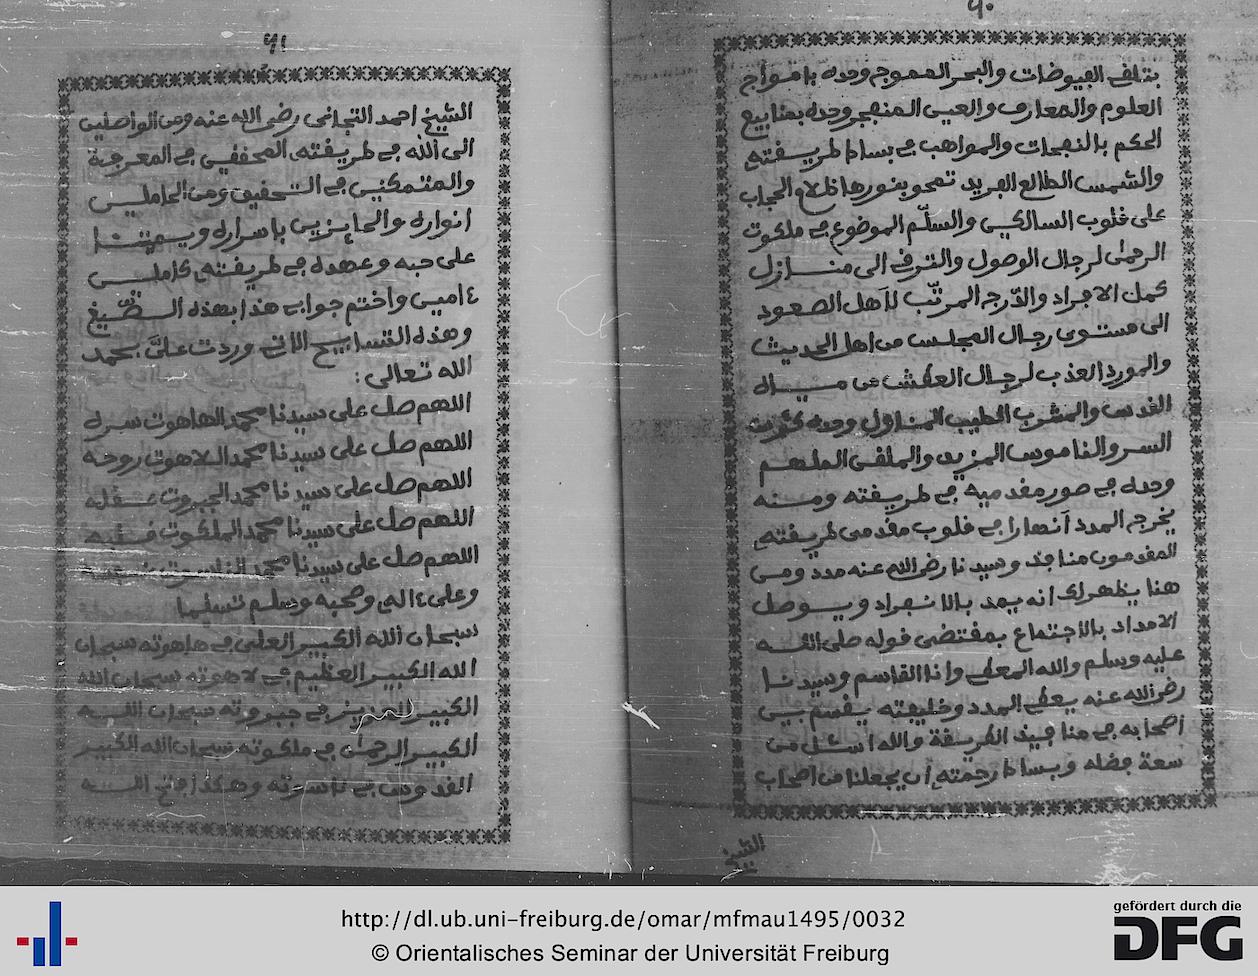 ٩٠
بتلقى الفيوضات والبحر المموج وحده بامواج
العلوم والمعارف والعين المنفجر وحده بمنابيع
الحكم بالنفحات والمواهب في بساط طريقته
والشمس الطالع الفريد تمحو بنورها ظلام الحجاب
على قلوب السالكين والسلّم الموضوع في ملكوت
الرحمن لرجال الوصول والترقي الى منازل
كمل الافراد والدّرج المرتّب لأهل الصعود
الى مستوى رجال المجلس من اهل الحديث
والمورد العذب لرجال العطش من مياه
القدس والمشرب الطيب المناول وحده
السر والناموس المزيد والملقى الملهم
وحده في صور مقدميه في طريقته ومنه
يخرج المدد أنهارا في قلوب مقدمى طريقته
المقدمون وسيدنا رضى الله عنه مدد ومن
هنا يظهر لك انه يمد بالانفراد ويوصل
الامداد بالاجتماع بمقتضى قوله صلى الله
عليه وسلم والله المعطى وانا القاسم وسيدنا
رضى الله عنه يعطى المدد وخليفته يقسم بين
اصحابه في الطريقة والله اسئل من
سعة فضله وبساط رحمته أن يجعلنا من اصحاب
الشيخ
٩١
الشيخ احمد التجانى رضى الله عنه ومن الواصلين
الى الله في طريقته المحققين في المعرفة
والمتمكنين في التحقيق ومن الحاملين
انواره والحايزين باسراره ويميتنا
على حبه وعهده في طريقته كاملين
ءامين واختم جوابى هذا بهذه الصّيغ
وهذه التسابيح التى وردت علىّ بحمد
الله تعالى:
اللهم صل على سيدنا محمد الهاهوت سره
اللهم صل على سيدنا محمد اللاهوت روحه
اللهم صل على سيدنا محمد الجبروت عقله
اللهم صل على سيدنا محمد الملكوت قلبه
اللهم صل على سيدنا محمد الناسوت
وعلى ءاله وصحبه وسلم تسليما
سبحان الله الكبير العلى في هاهوته سبحان
الله الكبير العظيم في لاهوته سبحان الله
الكبير العزيز في جبروته سبحان الله
الكبير الرحمان في ملكوته سبحان الله الكبير
القدوس في ناسوته وهكذا الله
http://dl.ub.uni-freiburg.de/omar/mfmau1495/0032
© Orientalisches Seminar der Universität Freiburg
gefördert durch die
DFG